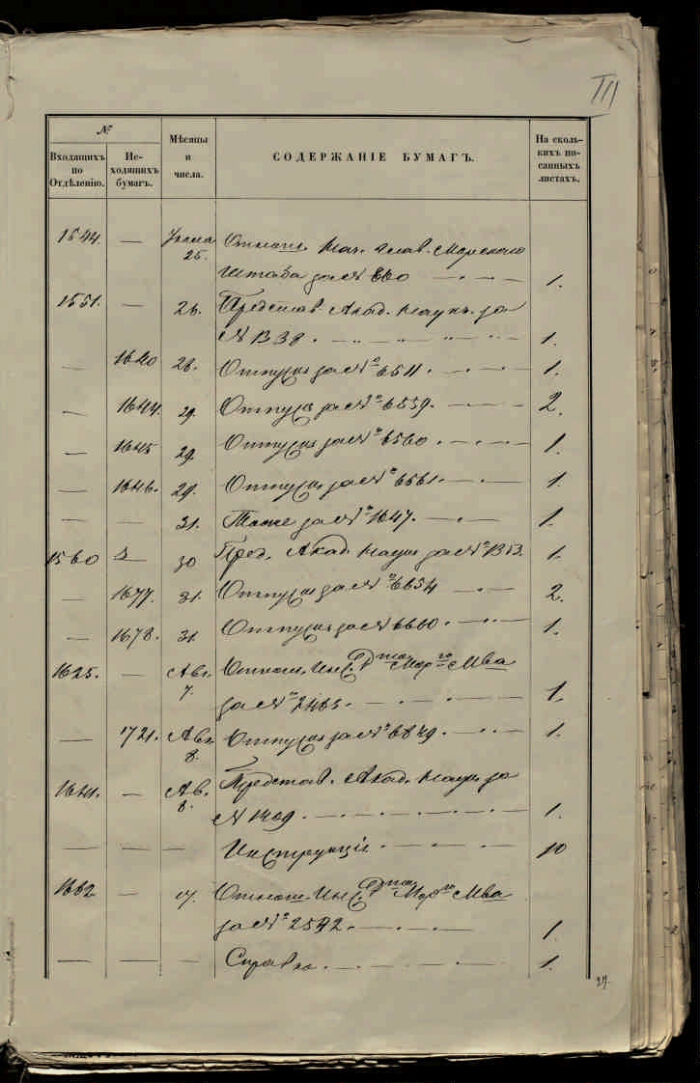 III
№
Входящихъ по Отдѣленію.
Исходящихъ бумагъ.
Мѣсяцы и числа.
СОДЕРЖАНІЕ БУМАГЪ.
На сколькихъ писанныхъ листахъ.
1544. — Іюля 25. Отнош. Нач. Глав. Морскаго
Штаба за № 660 — 1.
1551. — 26. Представ. Акад. Наукъ за
№ 1338. — 1.
— 1640 28. Отпускъ за № 6511. — 1.
— 1644. 29. Отпускъ за № 6559. — 2.
— 1645 29. Отпускъ за № 6560. — 1.
— 1646. 29. Отпускъ за № 6561. — 1.
31. Тоже за № 1647. — 1.
1560 30 Пред. Акад. Наукъ за № 1313. 1.
— 1677. 31. Отпускъ за № 6654 — 2.
— 1678. 31. Отпускъ за № 6660. — 1.
1625. — Авг. 7. Отнош. Инс. Дта Мор го Мва
за № 2465. — 1.
— 1721. Авг. 8. Отпускъ за № 6849. — 1.
— Ав. 8. Представ. Акад. Наукъ за
№ 1409. — 1.
— — — Инструкціи. — 10
1662 — 17. Отнош. Инс. Дта Мор го Мва
за № 2572. — 1.
— — — Справка. — 1.